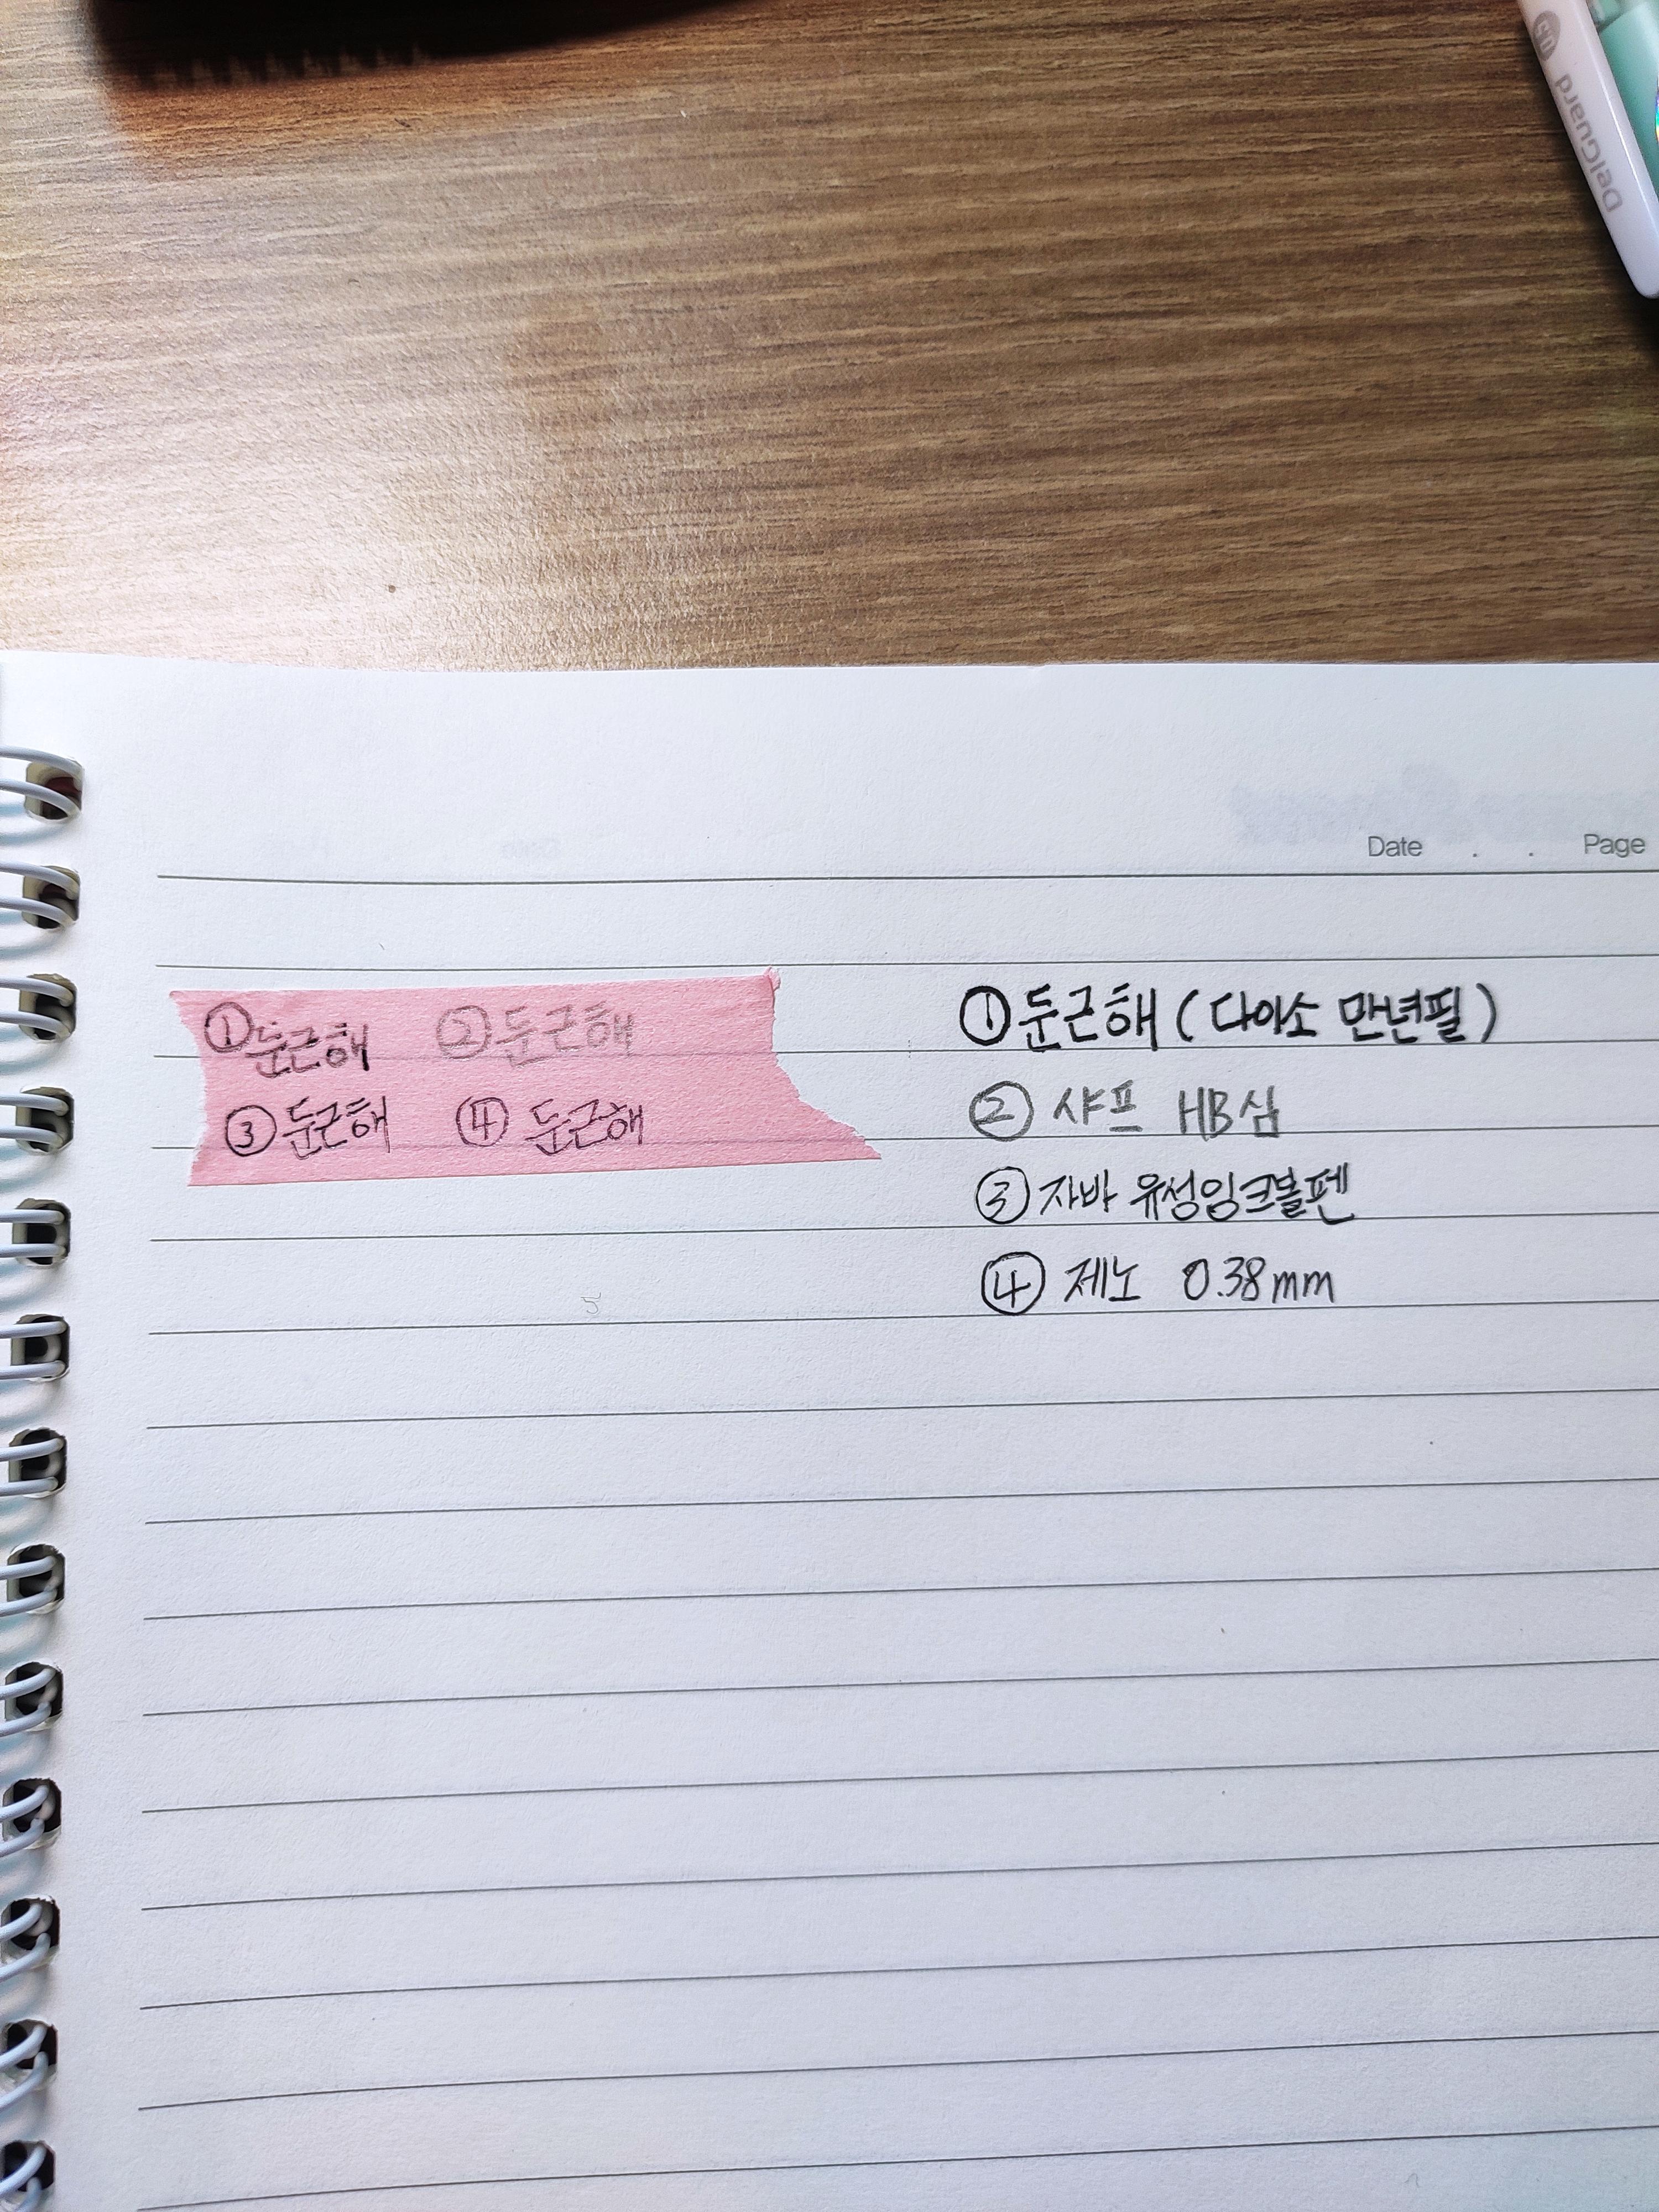 DelGuard
Date . . Page
① 둥근해 ② 둥근해
③ 둥근해 ④ 둥근해
① 둥근해 (다이소 만년필)
② 샤프 HB심
③ 자바 유성잉크볼펜
④ 제노 0.38mm